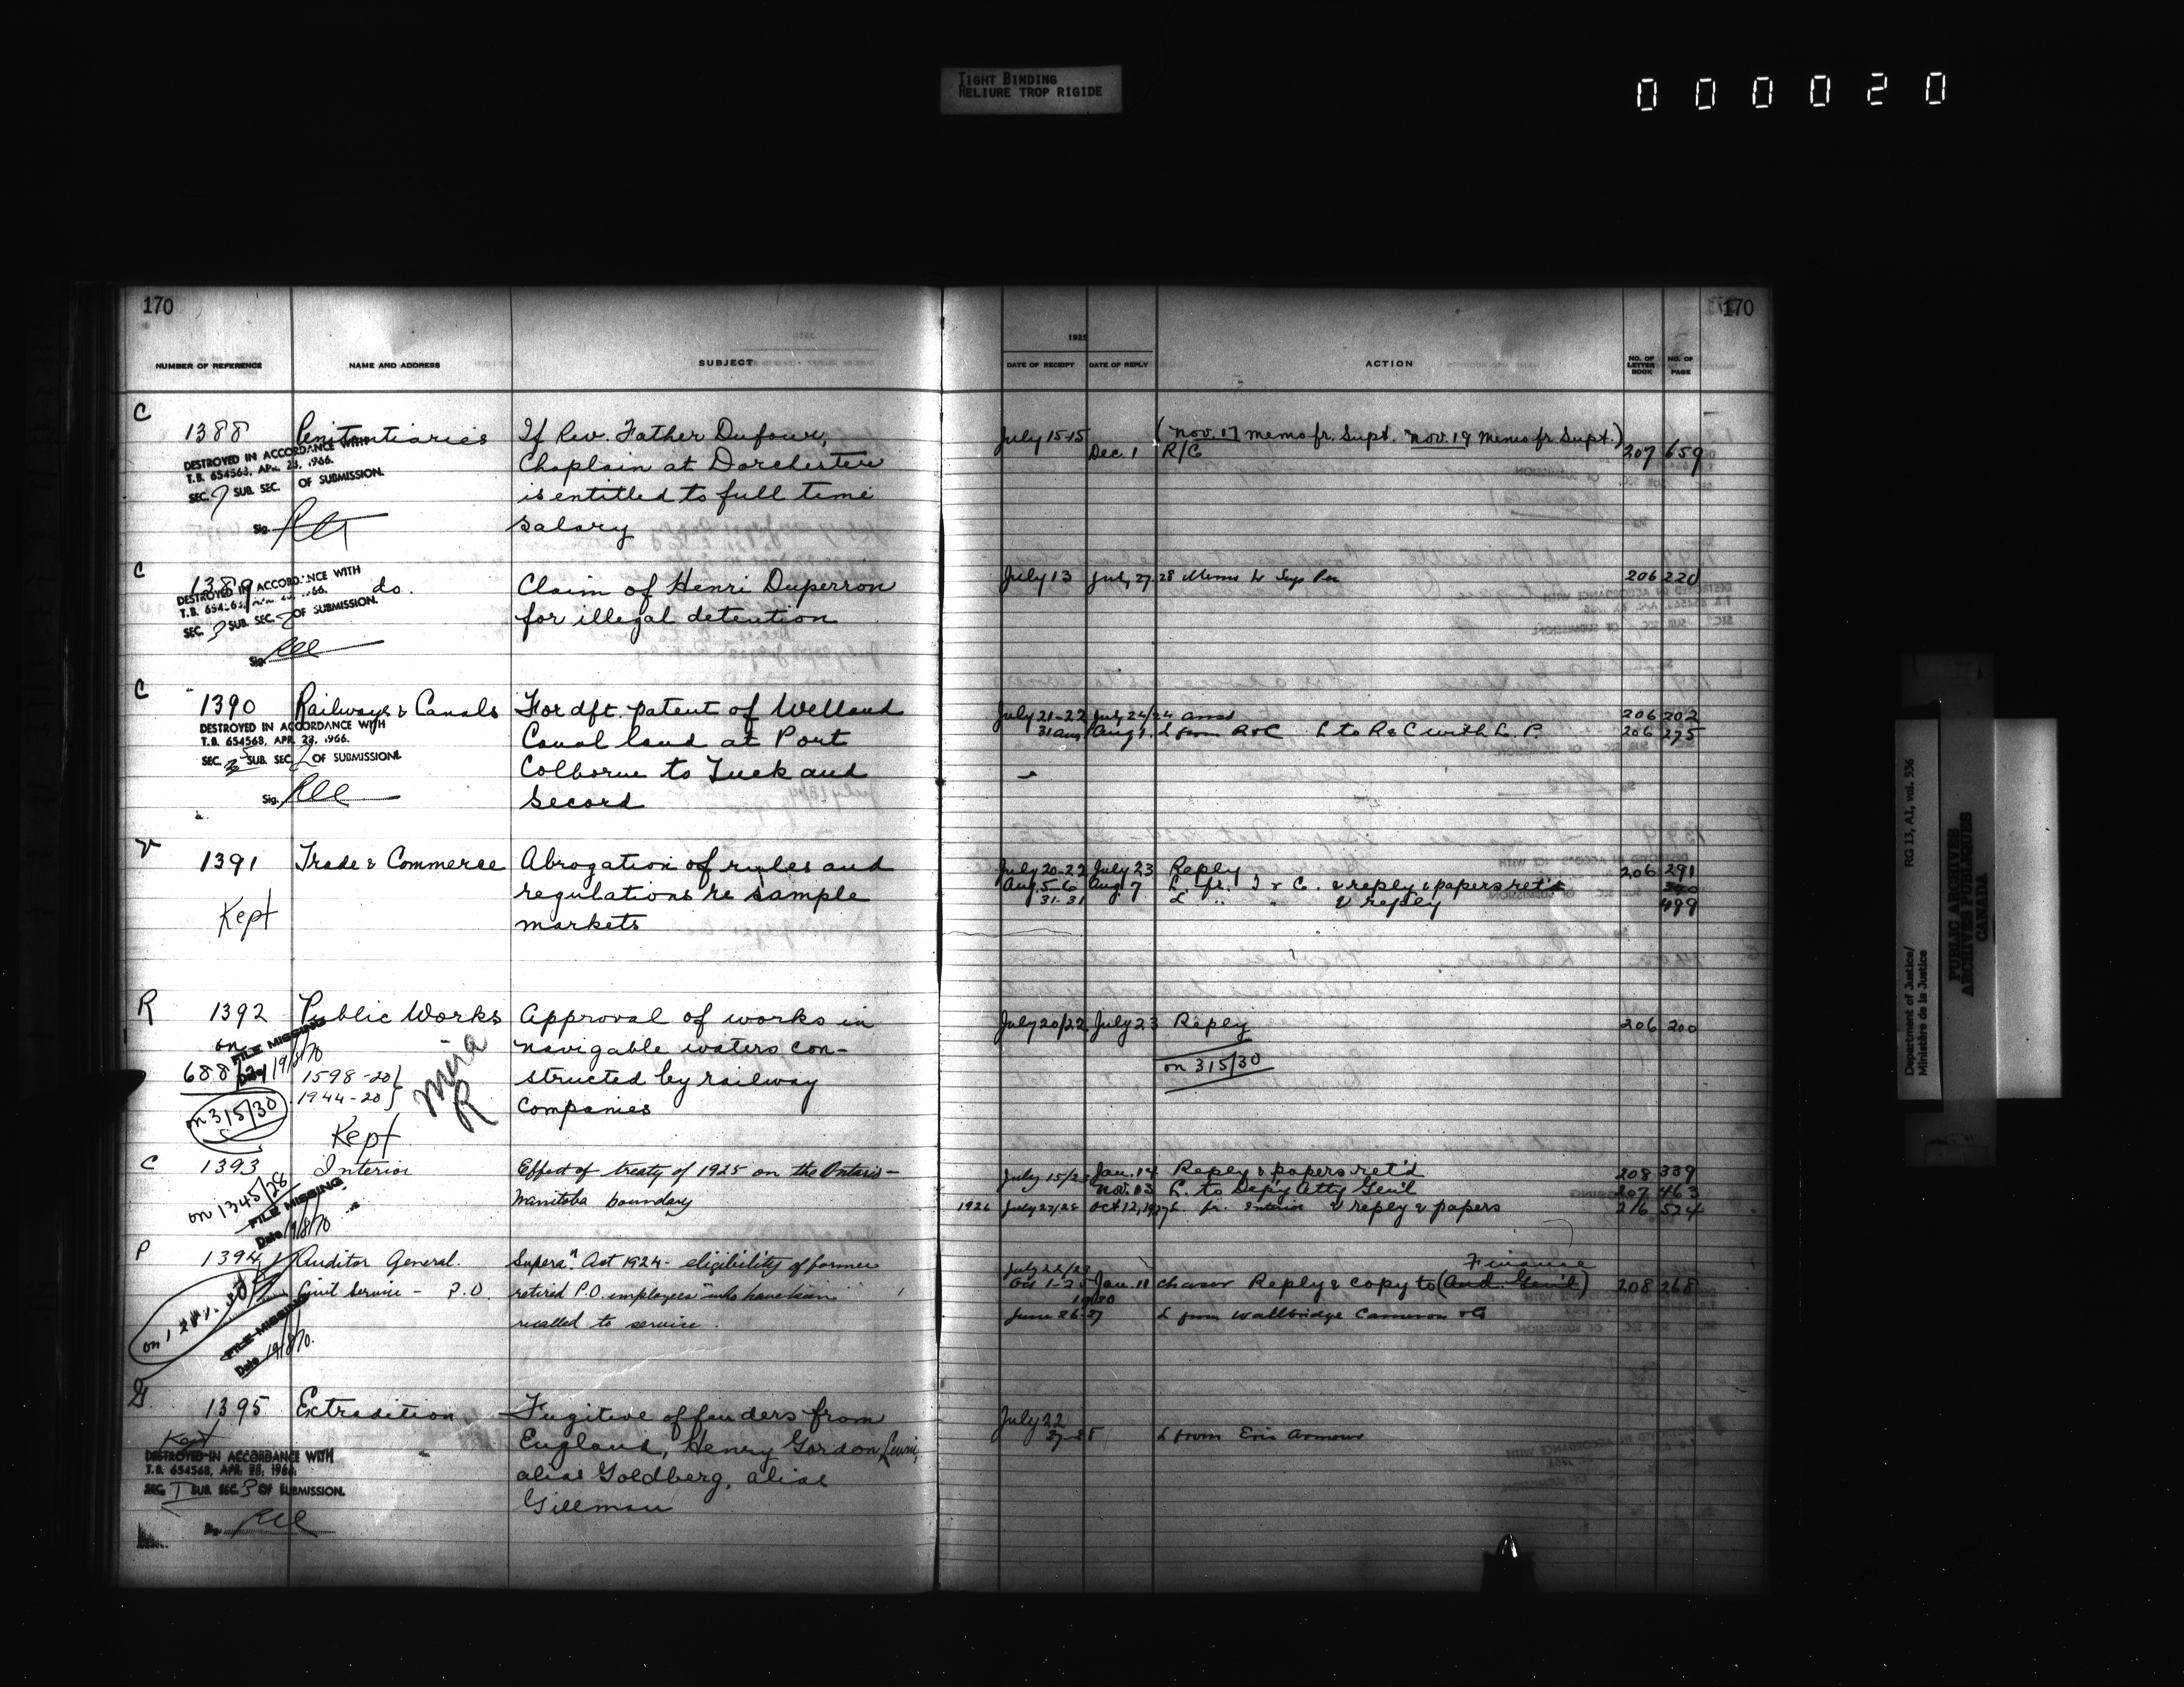 TIGHT BINDING
RELIURE TROP RIGIDE
000020
170
NUMBER OF REFERENCE NAME AND ADDRESS SUBJECT
C
1388 Penitentiaries If Rev. Father Dufour,
Chaplain at Dorchester
is entitled to full time
salary
DESTROYED IN ACCORDANCE WITH
T.B. 654563, APR. 28, 1966.
SEC. 7 SUB. SEC. OF SUBMISSION.
Sig.
C
1389 do. Claim of Henri Duperron
for illegal detention
DESTROYED IN ACCORDANCE WITH
SEC. 3 SUB. SEC. OF SUBMISSION.
Sig.
C
1390 Railways & Canals For dft. patent of Welland
Canal land at Port
Colborne to Tuck and
Secord
DESTROYED IN ACCORDANCE WITH
T.B. 654563, APR. 28, 1966.
SEC. SUB. SEC. 2 OF SUBMISSION.
Sig.
V
1391 Trade & Commerce Abrogation of rules and
regulations re sample
markets
Kept
R
1392 Public Works Approval of works in
navigable waters con-
structed by railway
companies
on
688/24
FILE MISSING
Date 19/8/70
1598-20
1944-20
on 315/30
R
Kept
C
1393 Interior Effect of treaty of 1925 on the Ontario-
Manitoba boundary
on 1345/28
FILE MISSING
Date 19/8/70
P
1394 Auditor General. Supera'n Act 1924 - eligibility of former
Civil Service - P.O. retired P.O. employees who have been
recalled to service.
FILE MISSING
Date 19/8/70.
G.
1395 Extradition Fugitive offenders from
England, Henry Gordon Lewis,
alias Goldberg, alias
Gillman
Kept
DESTROYED IN ACCORDANCE WITH
T.B. 654563, APR. 28, 1966.
SEC. I SUB. SEC. 3 OF SUBMISSION.
Sig.
170
1925
DATE OF RECEIPT DATE OF REPLY ACTION NO. OF LETTER BOOK NO. OF PAGE
July 15-15 (Nov. 17 memo fr. Supt. Nov. 19 Memo fr. Supt.)
Dec. 1 R/C 207 659
July 13 July 27 28 Memo to Supt Pen 206 220
July 21-22 July 24/24 ansd 206 202
31 Aug Aug 1. L from R&C L to R&C with L.P. 206 275
July 20-22 July 23 Reply 206 291
Aug. 5-6 Aug 7 L. fr. T & C. & reply & papers ret'd
31-31 L " " & reply 499
July 20/22 July 23 Reply 206 200
on 315/30
July 15/23 Jan. 14 Reply & papers ret'd 208 339
Nov. 13 L. to Dep'y Atty Gen'l 207 463
1926 July 27/28 Oct 12, 1927 L. fr. Interior & reply & papers 216 524
July 22/23 Finance
Oct 1-2 Jan. 11 Reply & copy to (Aud. Gen'l) 208 268
1930
June 26-27 L from Wallbridge Cameron & Co
July 22
27-28 L from Eric Armour
Department of Justice/
Ministère de la Justice
RG 13, A1, vol. 536
PUBLIC ARCHIVES
ARCHIVES PUBLIQUES
CANADA